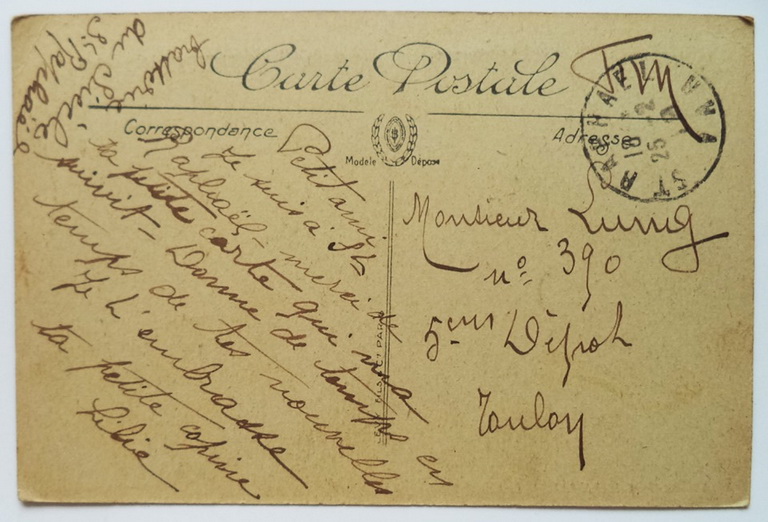 Carte Postale
Correspondance
Adresse
Modèle Déposé
Fm
18 - 2
25
Petit ami
Je suis à St
Raphaël - merci de
ta petite carte qui m'a
suivit - Donne de temps en
temps de tes nouvelles
Je t'embrasse
ta petite copine
Lilie
du Siècle
St Raphaël
Monsieur Lunig
n° 390
5eme Dépot
Toulon